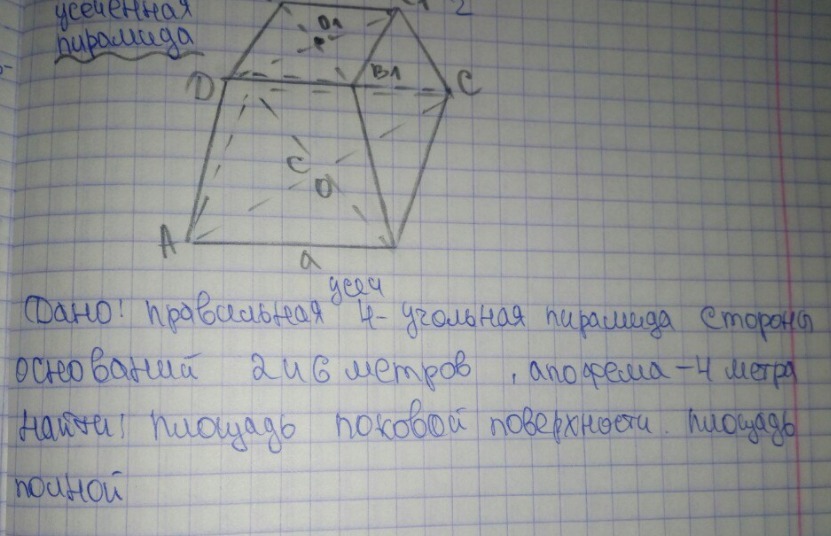 усеченная
пирамида
2
O1
B1
D
C
C
O
A
a
усеч
Дано: правильная 4-угольная пирамида стороны
оснований 2 и 6 метров, апофема-4 метра
найти: площадь поковой поверхности. площадь
полной